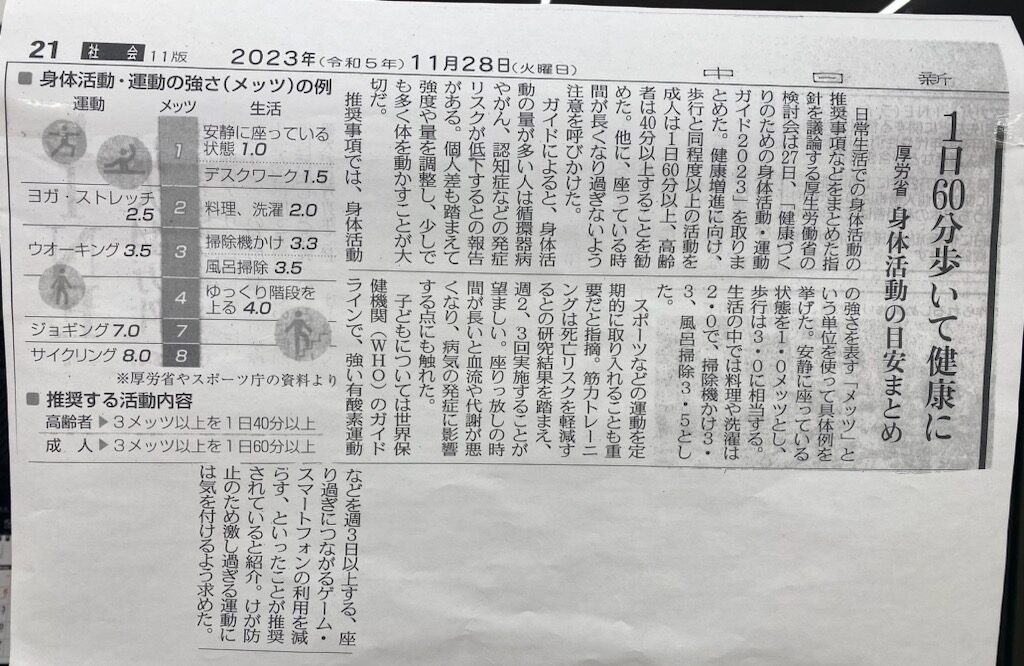 21 社会 11版 2023年(令和5年)11月28日(火曜日) 中日新
1日60分歩いて健康に
厚労省 身体活動の目安まとめ
日常生活での身体活動の
推奨事項などをまとめた指
針を議論する厚生労働省の
検討会は27日、「健康づく
りのための身体活動・運動
ガイド2023」を取りま
とめた。健康増進に向け、
歩行と同程度以上の活動を
成人は1日60分以上、高齢
者は40分以上することを勧
めた。他に、座っている時
間が長くなり過ぎないよう
注意を呼びかけた。
ガイドによると、身体活
動の量が多い人は循環器病
やがん、認知症などの発症
リスクが低下するとの報告
がある。個人差も踏まえて
強度や量を調整し、少しで
も多く体を動かすことが大
切だ。
推奨事項では、身体活動
の強さを表す「メッツ」と
いう単位を使って具体例を
挙げた。安静に座っている
状態を1・0メッツとし、
歩行は3・0に相当する。
生活の中では料理や洗濯は
2・0で、掃除機かけ3・
3、風呂掃除3・5とし
た。
スポーツなどの運動を定
期的に取り入れることも重
要だと指摘。筋力トレーニ
ングは死亡リスクを軽減す
るとの研究結果を踏まえ、
週2、3回実施することが
望ましい。座りっ放しの時
間が長いと血流や代謝が悪
くなり、病気の発症に影響
する点にも触れた。
子どもについては世界保
健機関(WHO)のガイド
ラインで、強い有酸素運動
などを週3日以上する、座
り過ぎにつながるゲーム・
スマートフォンの利用を減
らす、といったことが推奨
されていると紹介。けが防
止のため激し過ぎる運動に
は気を付けるよう求めた。
■ 身体活動・運動の強さ(メッツ)の例
運動 メッツ 生活
1 安静に座っている
状態 1.0
デスクワーク 1.5
ヨガ・ストレッチ
2.5
2 料理、洗濯 2.0
ウオーキング 3.5 3 掃除機かけ 3.3
風呂掃除 3.5
4 ゆっくり階段を
上る 4.0
ジョギング 7.0 7
サイクリング 8.0 8
※厚労省やスポーツ庁の資料より
■ 推奨する活動内容
高齢者▶3メッツ以上を1日40分以上
成 人▶3メッツ以上を1日60分以上